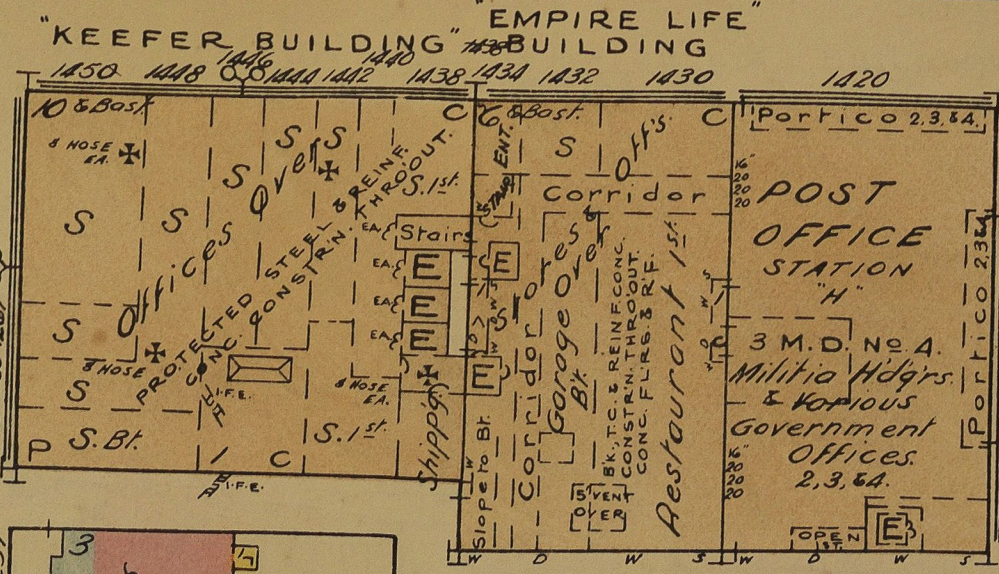 "KEEFER BUILDING"
"EMPIRE LIFE"
BUILDING
1450 1448 1446 1444 1442 1440 1438 1434 1432 1430 1420
10 & Bast
C
8 HOSE
EA.
S
S
S
S
S
S
S
Offices Over
PROTECTED STEEL & REINF.
CONC. CONSTR'N. THRO'OUT.
S. 1st.
EA.
Stairs
EA.
E
EA.
E
EA.
E
8 HOSE
I.F.E.
8 HOSE
EA.
S. Bt.
S. 1st.
Shippg.
P
C
I.F.E.
6 & Bast.
C
ENT.
S
Off's.
Corridor
E
E
Stores &
Over
Garage
Bt.
Corridor
Slope to Bt.
BK., T.C. & REINF. CONC.
CONSTR'N. THRO'OUT.
CONC. FL'RS. & R'F.
Restaurant 1st.
5 VENT
OVER
W D W S
Portico 2,3,&4.
16"
20
20
20
POST
OFFICE
STATION
"H"
Portico 2,3,&4
3 M.D. No 4.
Militia Hdqrs.
& Various
Government
Offices.
2,3,&4.
16"
20
20
20
OPEN
E
3
W D W S
3